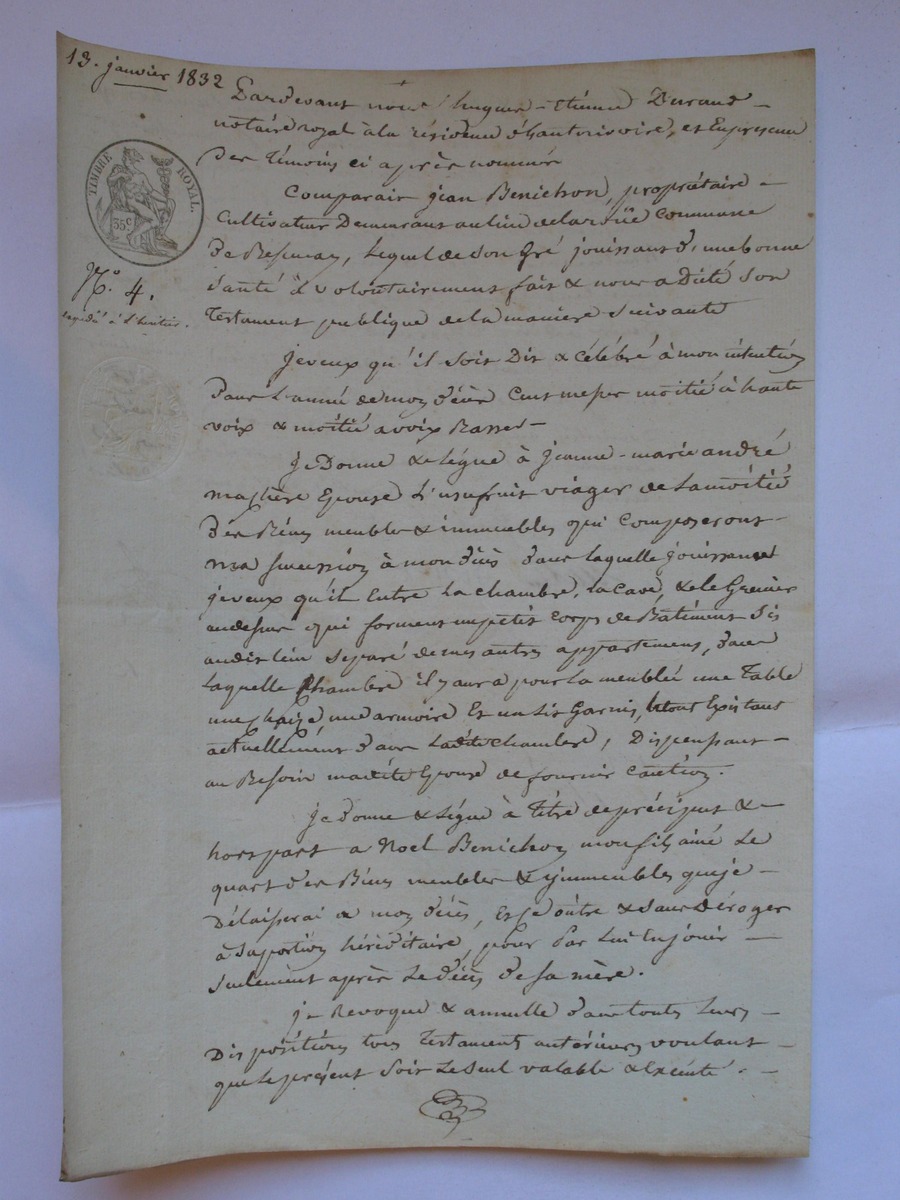 13. janvier 1832
Pardevant nous hugues-Etienne Durand
notaire royal à la résidence d'hauterivoire, et En présence
des Témoins ci après nommés
Comparait jean Benichon, propriétaire
Cultivateur Demeurant au lieu de la roüe commune
de        , Lequel de son gré jouissant d'une bonne
santé à volontairement fait & nous a Dicté son
Testament publique de la maniere suivante
TIMBRE ROYAL.
35c
N.° 4.
expédié à l'héritier.
je veux qu'il soit Dit & célébré à mon intention
Dans L'année de mon décès Cent messes moitié à haute
voix & moitié a voix Basse
je Donne & Légue à jeanne-marie andré
ma chère Epouse L'usufruit viager de la moitié
des Biens meubles & immeubles qui composeront
ma succession à mon décès dans laquelle jouissance
je veux qu'il Entre La chambre, La cave, & le Grenier
au dessus qui forment un petit corps de Bâtiment sis
audit lieu séparé de mes autres appartements, dans
laquelle Chambre il y aura pour la meublée une Table
une chaize une armoire Et un Lit Garnis, Le tout Existant
actuellement dans Ladite chambre, Dispensant
au Besoin madite Epouse de fournir caution.
je Donne & Légue à Titre de préciput &
hors part a Noel Benichon mon fils ainé Le
quart des Biens meubles & ymmeubles que je
Délaisserai a mon décès, Et ce outre & sans Déroger
à sa portion héréditaire, pour par Lui En jouir
seulement après Le décès de sa mère.
je Revoque & annulle dans toutes Leurs
Dispositions tous Testaments antérieurs voulant
que le présent soit Le seul valable & Exécuté.